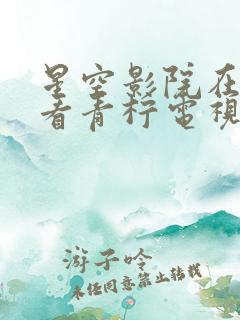 星空影院在
看青柠电视
游子吟
未经同意禁止转载